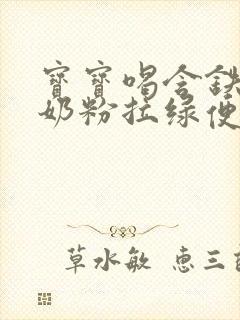 寶寶喝含
奶粉拉綠便
草水敏 惠三